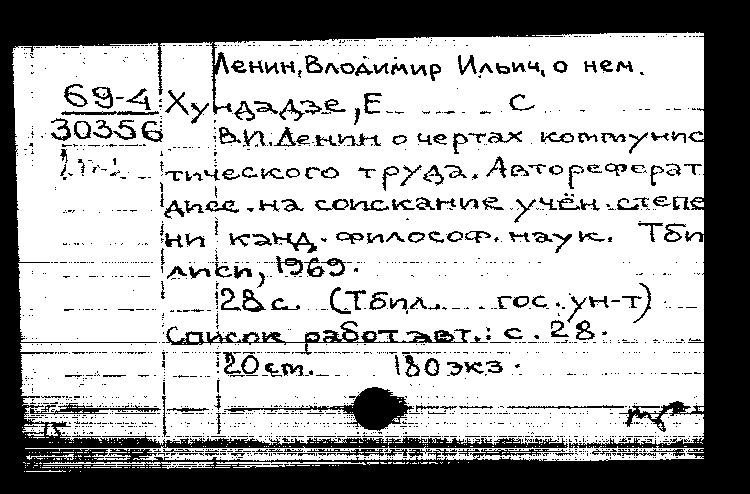 Ленин, Владимир Ильич, о нем.
69-4 Хундадзе, Е С
30356 В.И. Ленин о чертах коммунис
тического труда. Автореферат
дисс. на соискание учён. степе
ни канд. философ. наук. Тби
лиси, 1969.
28 с. (Тбил. гос. ун-т)
Список работ авт.: с. 28.
20 cm. 180 экз.
15